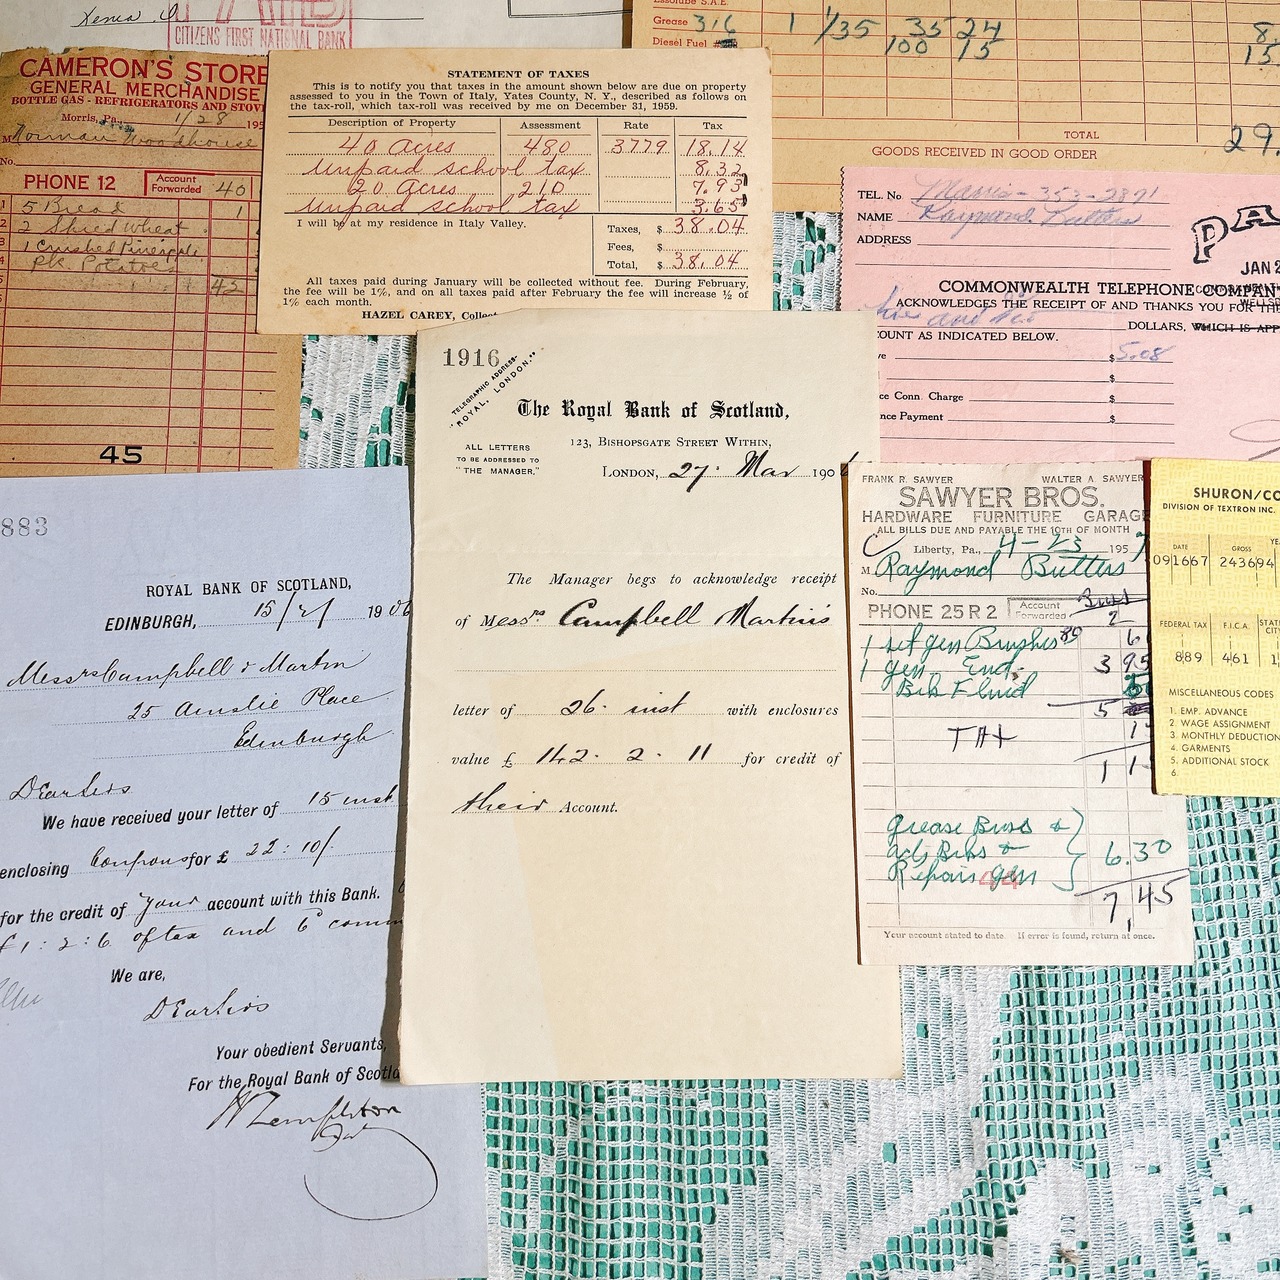 Xenia, O
PAID
CITIZENS FIRST NATIONAL BANK
Essolube S.A.E.
Grease 316 1 1/35 35 24 8.
Diesel Fuel 100 15 15.
TOTAL 29.
GOODS RECEIVED IN GOOD ORDER
CAMERON'S STORE
GENERAL MERCHANDISE
BOTTLE GAS - REFRIGERATORS AND STOV
Morris, Pa., 1/28 195
M Norman Woodhouse
No.
PHONE 12 Account Forwarded 40
1 5 Bread 1
2 2 Shred Wheat
3 1 Crushed Pineapple
4 Pk. Potatoes
5 43
45
STATEMENT OF TAXES
This is to notify you that taxes in the amount shown below are due on property
assessed to you in the Town of Italy, Yates County, N. Y., described as follows on
the tax-roll, which tax-roll was received by me on December 31, 1959.
Description of Property Assessment Rate Tax
40 Acres 480 3779 18.14
Unpaid school tax 8.32
20 Acres 210 7.93
Unpaid school tax 3.65
I will be at my residence in Italy Valley.
Taxes, $ 38.04
Fees, $
Total, $ 38.04
All taxes paid during January will be collected without fee. During February,
the fee will be 1%, and on all taxes paid after February the fee will increase ½ of
1% each month.
HAZEL CAREY, Collect
TEL. No Mans- 353-2891
NAME Raymond Butters
ADDRESS
PA
JAN 2
COMMONWEALTH TELEPHONE COMPANY
ACKNOWLEDGES THE RECEIPT OF AND THANKS YOU FOR THE
five and
DOLLARS, WHICH IS APP
COUNT AS INDICATED BELOW.
ve $ 5.08
$
ce Conn. Charge $
nce Payment $
1916
TELEGRAPHIC ADDRESS-
"ROYAL, LONDON."
The Royal Bank of Scotland,
123, BISHOPSGATE STREET WITHIN,
ALL LETTERS
TO BE ADDRESSED TO
"THE MANAGER."
LONDON, 27. Mar 190
The Manager begs to acknowledge receipt
of Messrs. Campbell Martin's
letter of 26. inst with enclosures
value £ 142. 2. 11 for credit of
their Account.
883
ROYAL BANK OF SCOTLAND,
EDINBURGH, 15/2/ 1906
Messrs Campbell & Martin
25 Ainslie Place
Edinburgh
Dear Sirs
We have received your letter of 15 inst
enclosing Coupons for £ 22:10/
for the credit of your account with this Bank.
£1:2:6 of tax and 6 comm
We are,
Dear Sirs
Your obedient Servants,
For the Royal Bank of Scotla
W Templeton
FRANK R. SAWYER WALTER A SAWYER
SAWYER BROS.
HARDWARE FURNITURE GARAGE
ALL BILLS DUE AND PAYABLE THE 10TH OF MONTH
Liberty, Pa., 4-23 195 7
M Raymond Butters
No.
PHONE 25 R 2 Account Forwarded 2
1 set gen Brushes 80 6
1 gen End. 3 95
Bk Fluid
5
TAX 1
1 1
Grease Buss &
adj Bks &
Repair gen
6.30
7,45
Your account stated to date. If error is found, return at once.
SHURON/CO
DIVISION OF TEXTRON INC.
DATE GROSS YE
091667 243694
FEDERAL TAX F.I.C.A. STAT
CIT
889 461 1
MISCELLANEOUS CODES
1. EMP. ADVANCE
2. WAGE ASSIGNMENT
3. MONTHLY DEDUCTION
4. GARMENTS
5. ADDITIONAL STOCK
6.